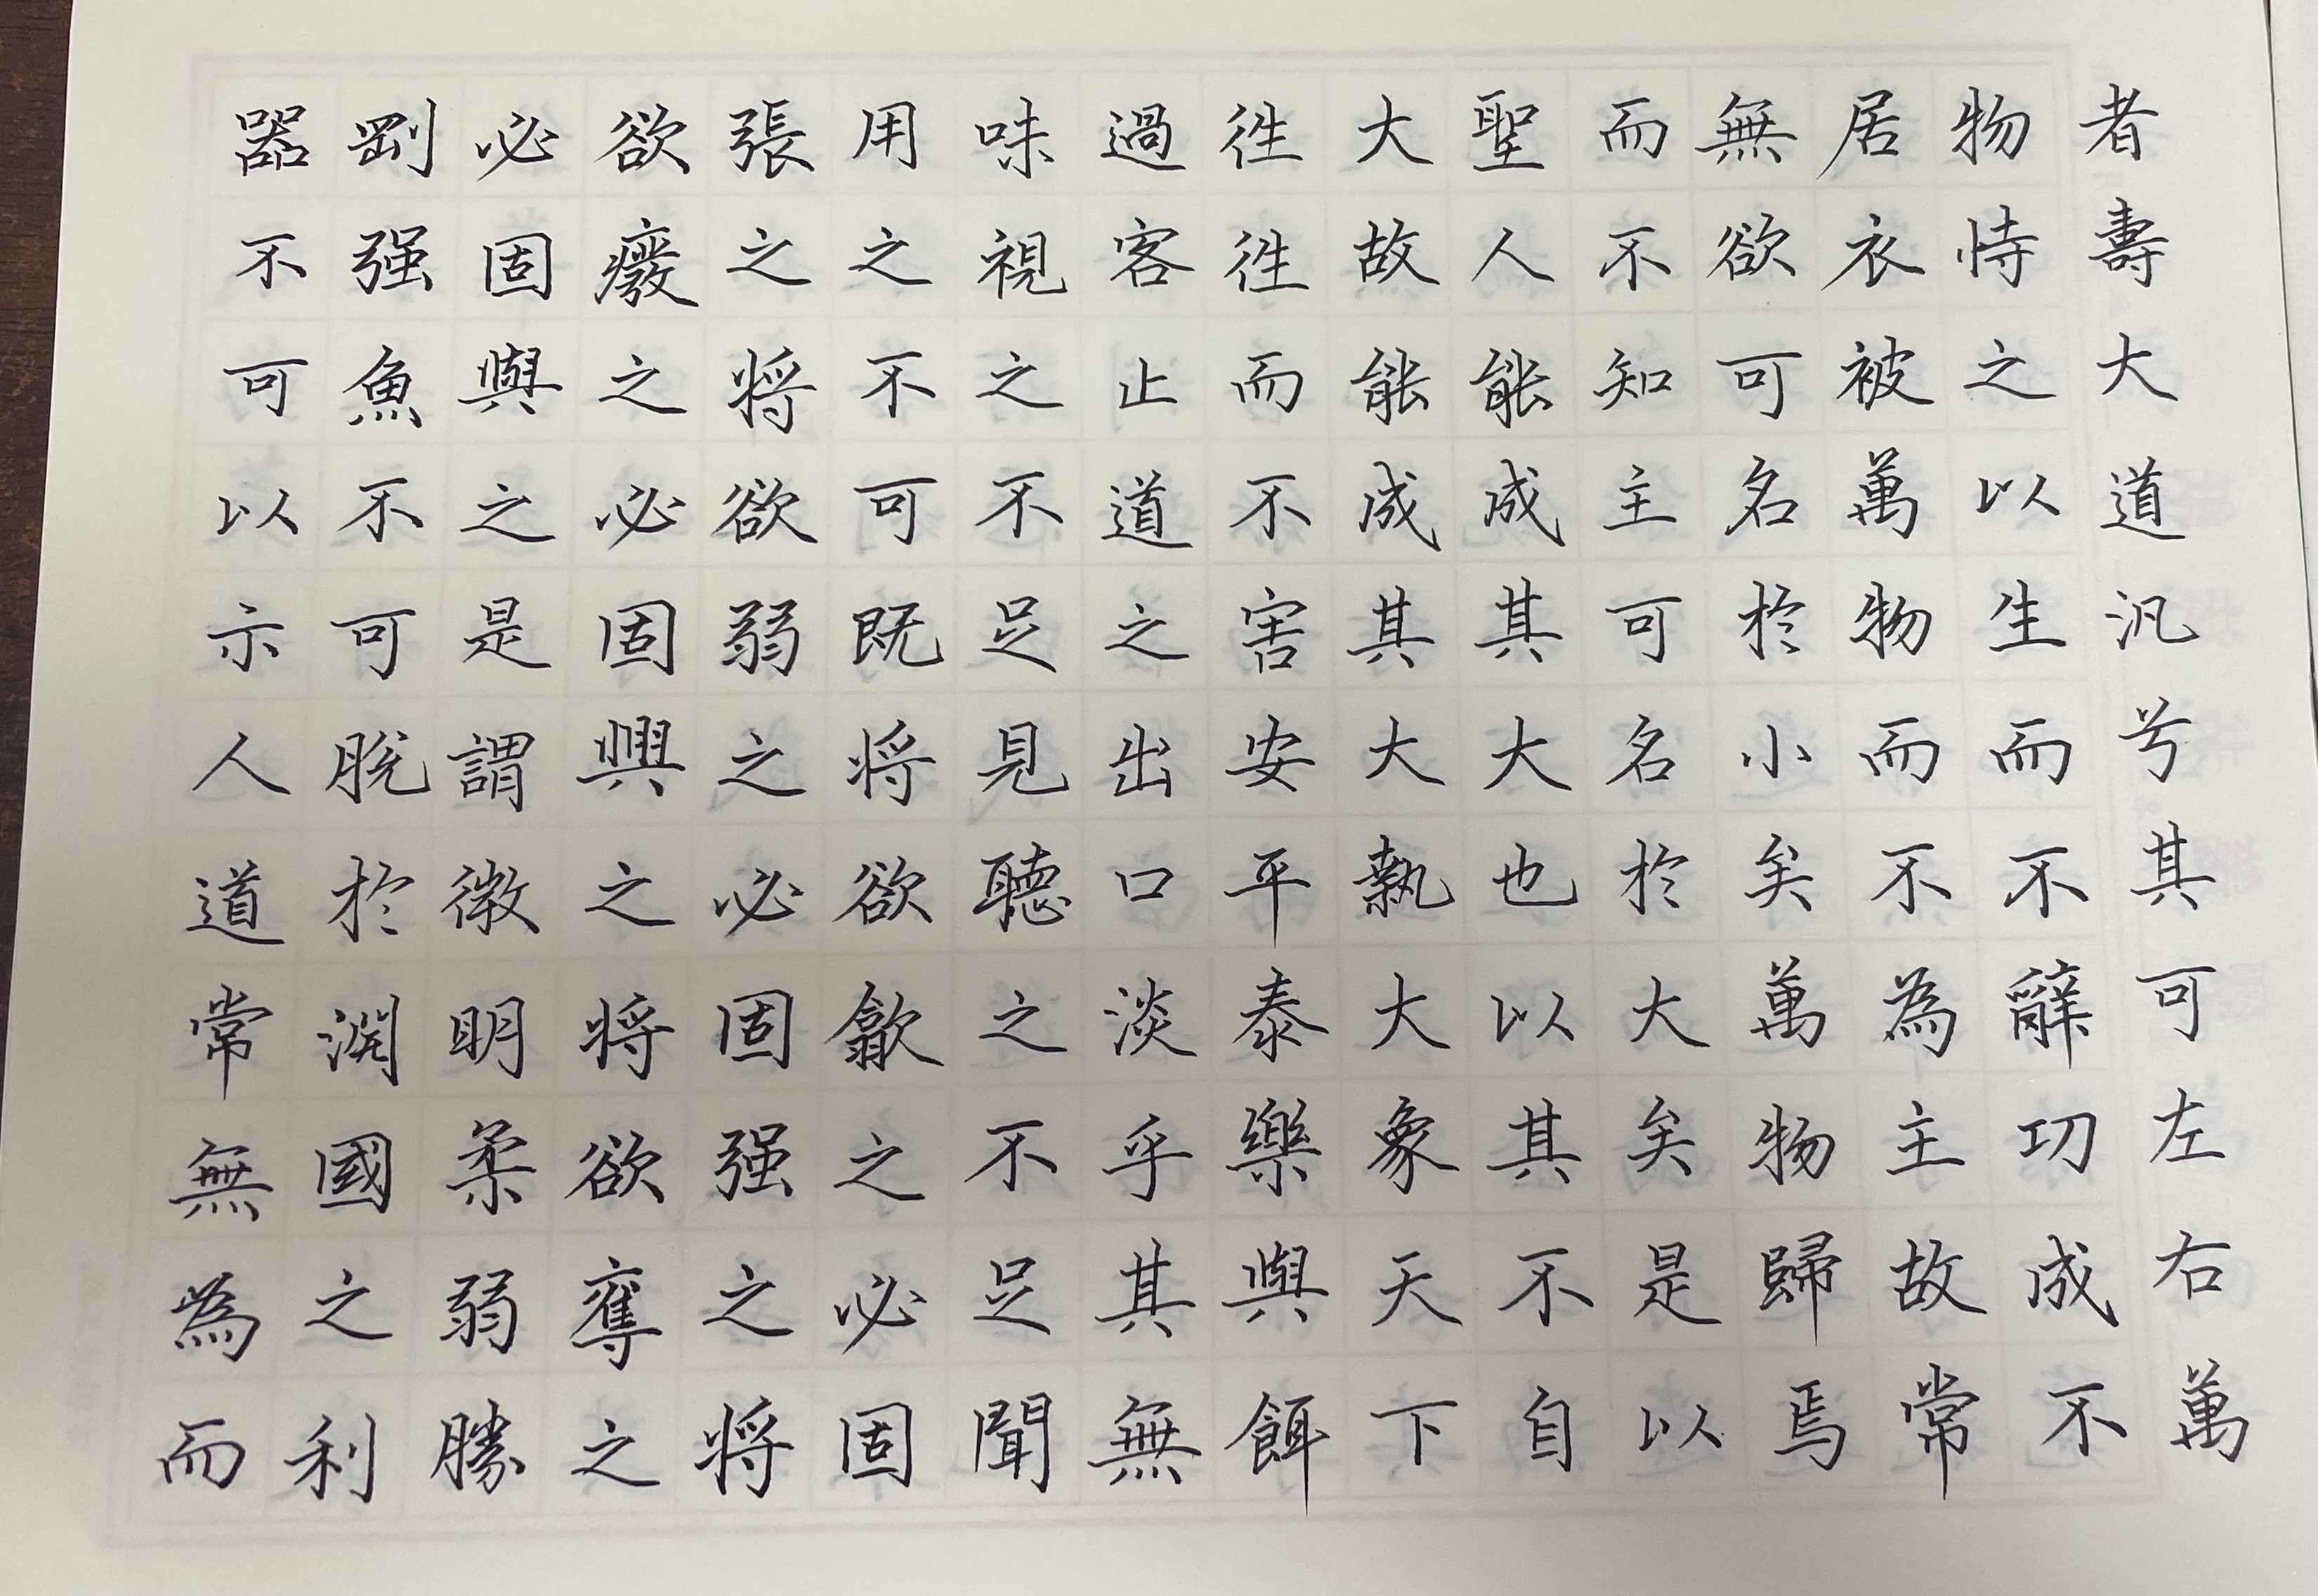 者壽大道汎兮其可左右萬
物恃之以生而不辭功成不
居衣被萬物而不為主故常
無欲可名於小矣萬物歸焉
而不知主可名於大矣是以
聖人能成其大也以其不自
大故能成其大執大象天下
往往而不害安平泰樂與餌
過客止道之出口淡乎其無
味視之不足見聽之不足聞
用之不可既将欲歙之必固
張之将欲弱之必固强之将
欲癈之必固興之将欲奪之
必固與之是謂微明柔弱勝
剛强魚不可脱於淵國之利
器不可以示人道常無為而